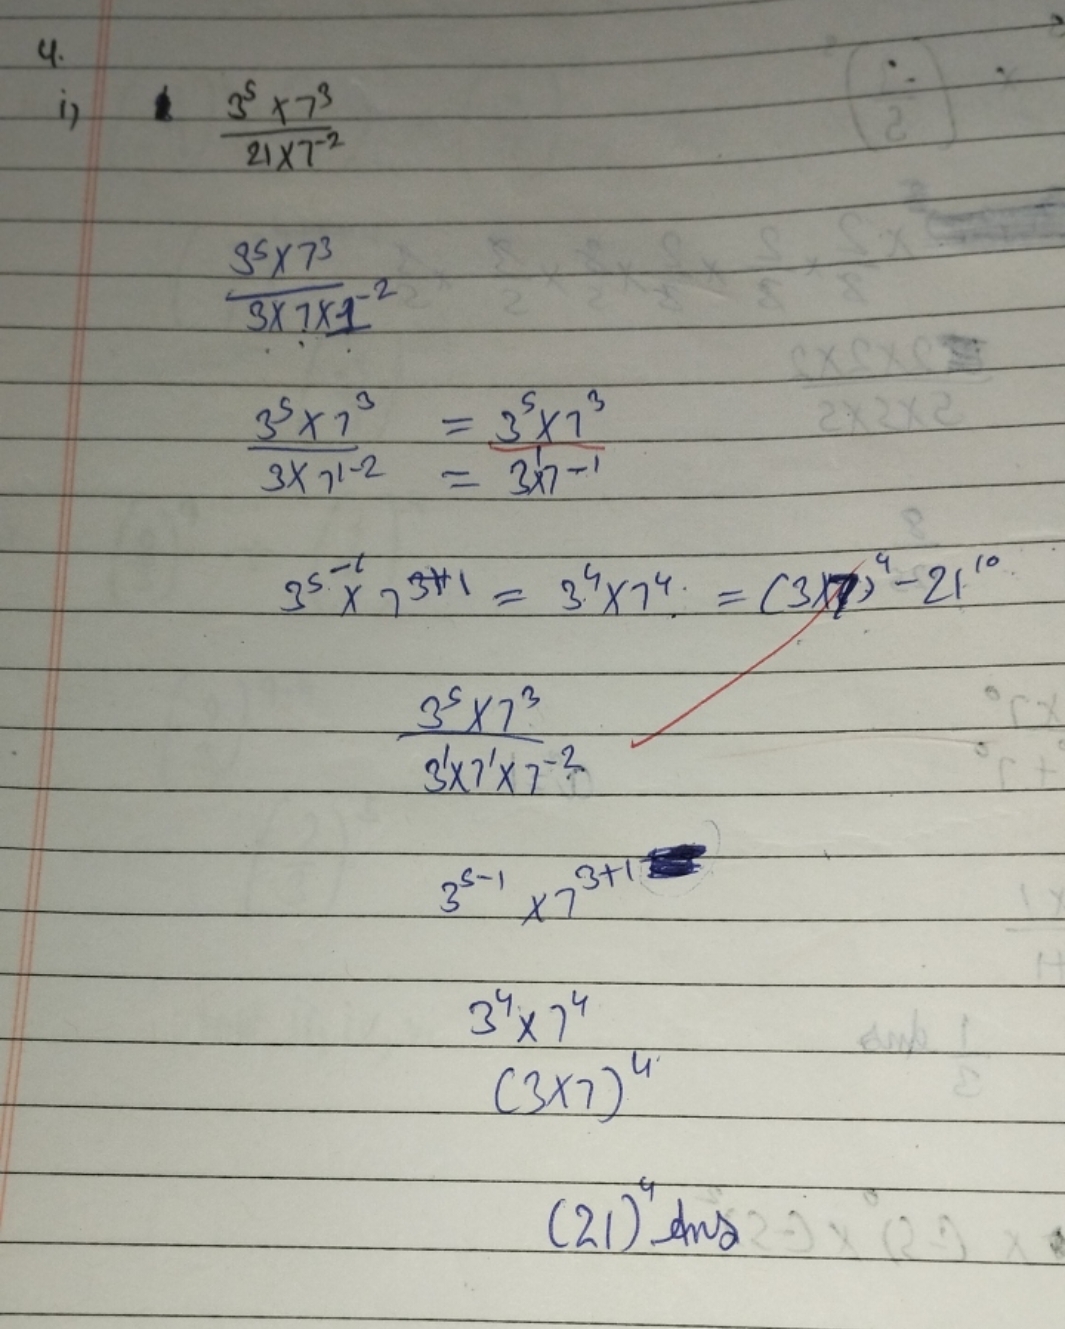 4.
i) 3^5 × 7^3 / 21 × 7^-2
3^5 × 7^3 / 3 × 7 × 7^-2
3^5 × 7^3 / 3 × 7^1-2 = 3^5 × 7^3 / = 3^1 × 7^-1
3^5-1 × 7^3+1 = 3^4 × 7^4 = (3×7)^4 - 21^10
3^5 × 7^3 / 3^1 × 7^1 × 7^-2
3^5-1 × 7^3+1
3^4 × 7^4
(3×7)^4
(21)^4 Ans